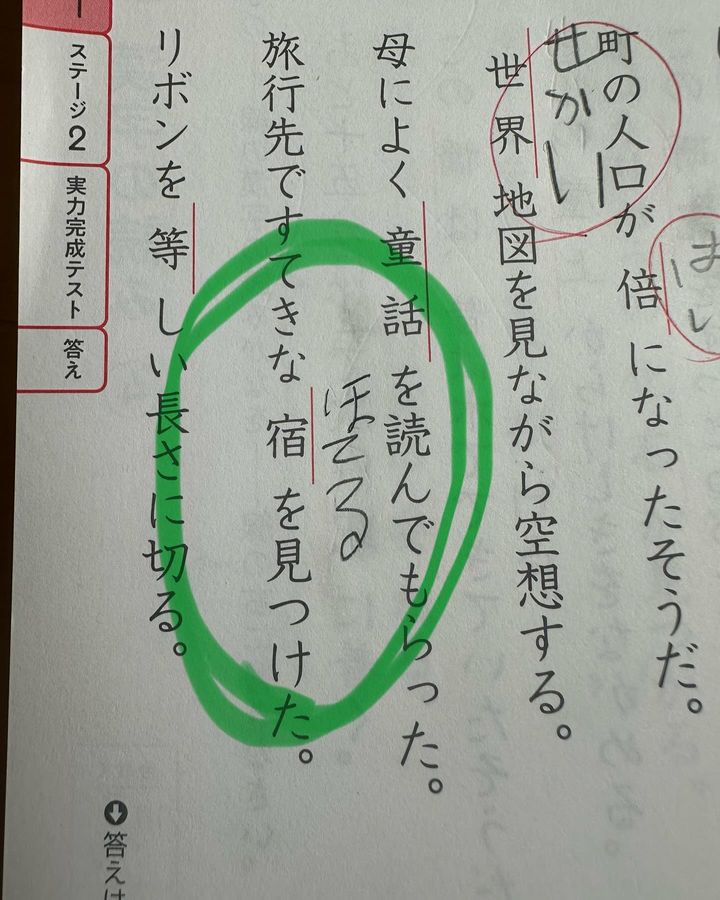 町の人口が倍になったそうだ。
ばい
世界地図を見ながら空想する。
せかい
母によく童話を読んでもらった。
旅行先ですてきな宿を見つけた。
ほてる
リボンを等しい長さに切る。
1
ステージ2
実力完成テスト
答え
答えは